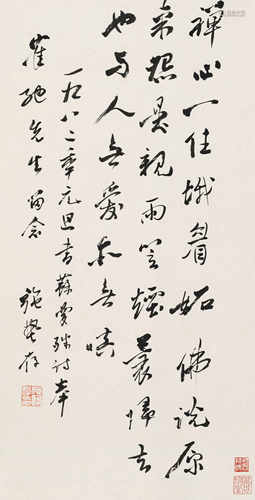 禪心一任蛾眉妬佛說原
來怨是親雨笠煙蓑歸去
也与人無愛亦無嗔
一九八二年元旦書蘇曼殊詩奉
先生留念
施蟄存